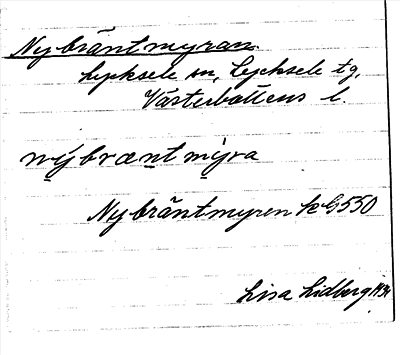 Nybräntmyran.
Lycksele sn, Lycksele tg,
Västerbottens l.
nybrœntmyra
Nybräntmyren k G550
Lisa Lidberg 1934